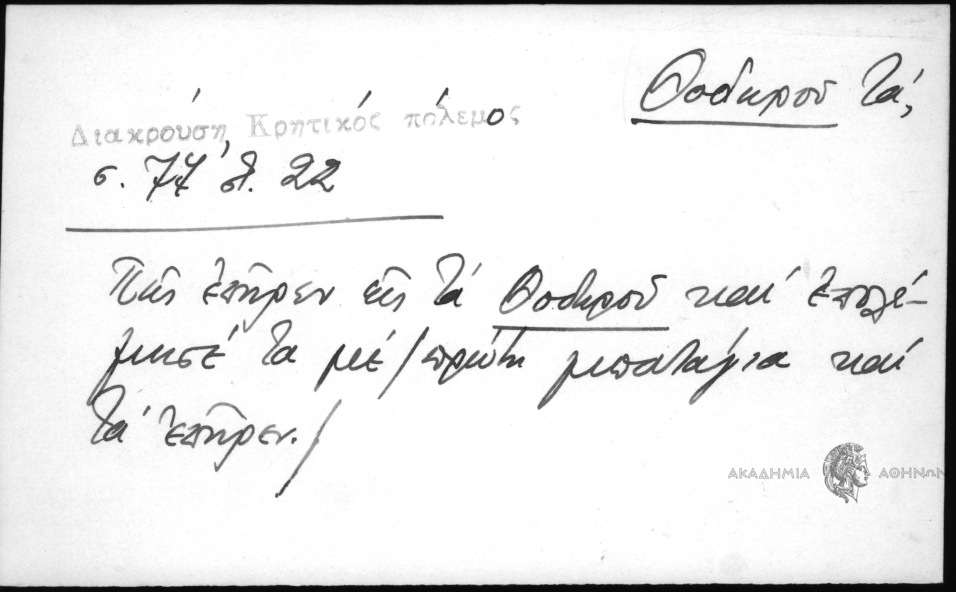 Θοδηροῦ τά,
Διακρούση, Κρητικός πόλεμος
σ. 77, στ. 22
Πῆς ἐπῆρεν εἰς τά Θοδηροῦ καί ἐπολέ-
μησέ τα μέ /πρώτη μπατάγια καί
τά ἐπῆρεν./
ΑΚΑΔΗΜΙΑ ΑΘΗΝΩΝ